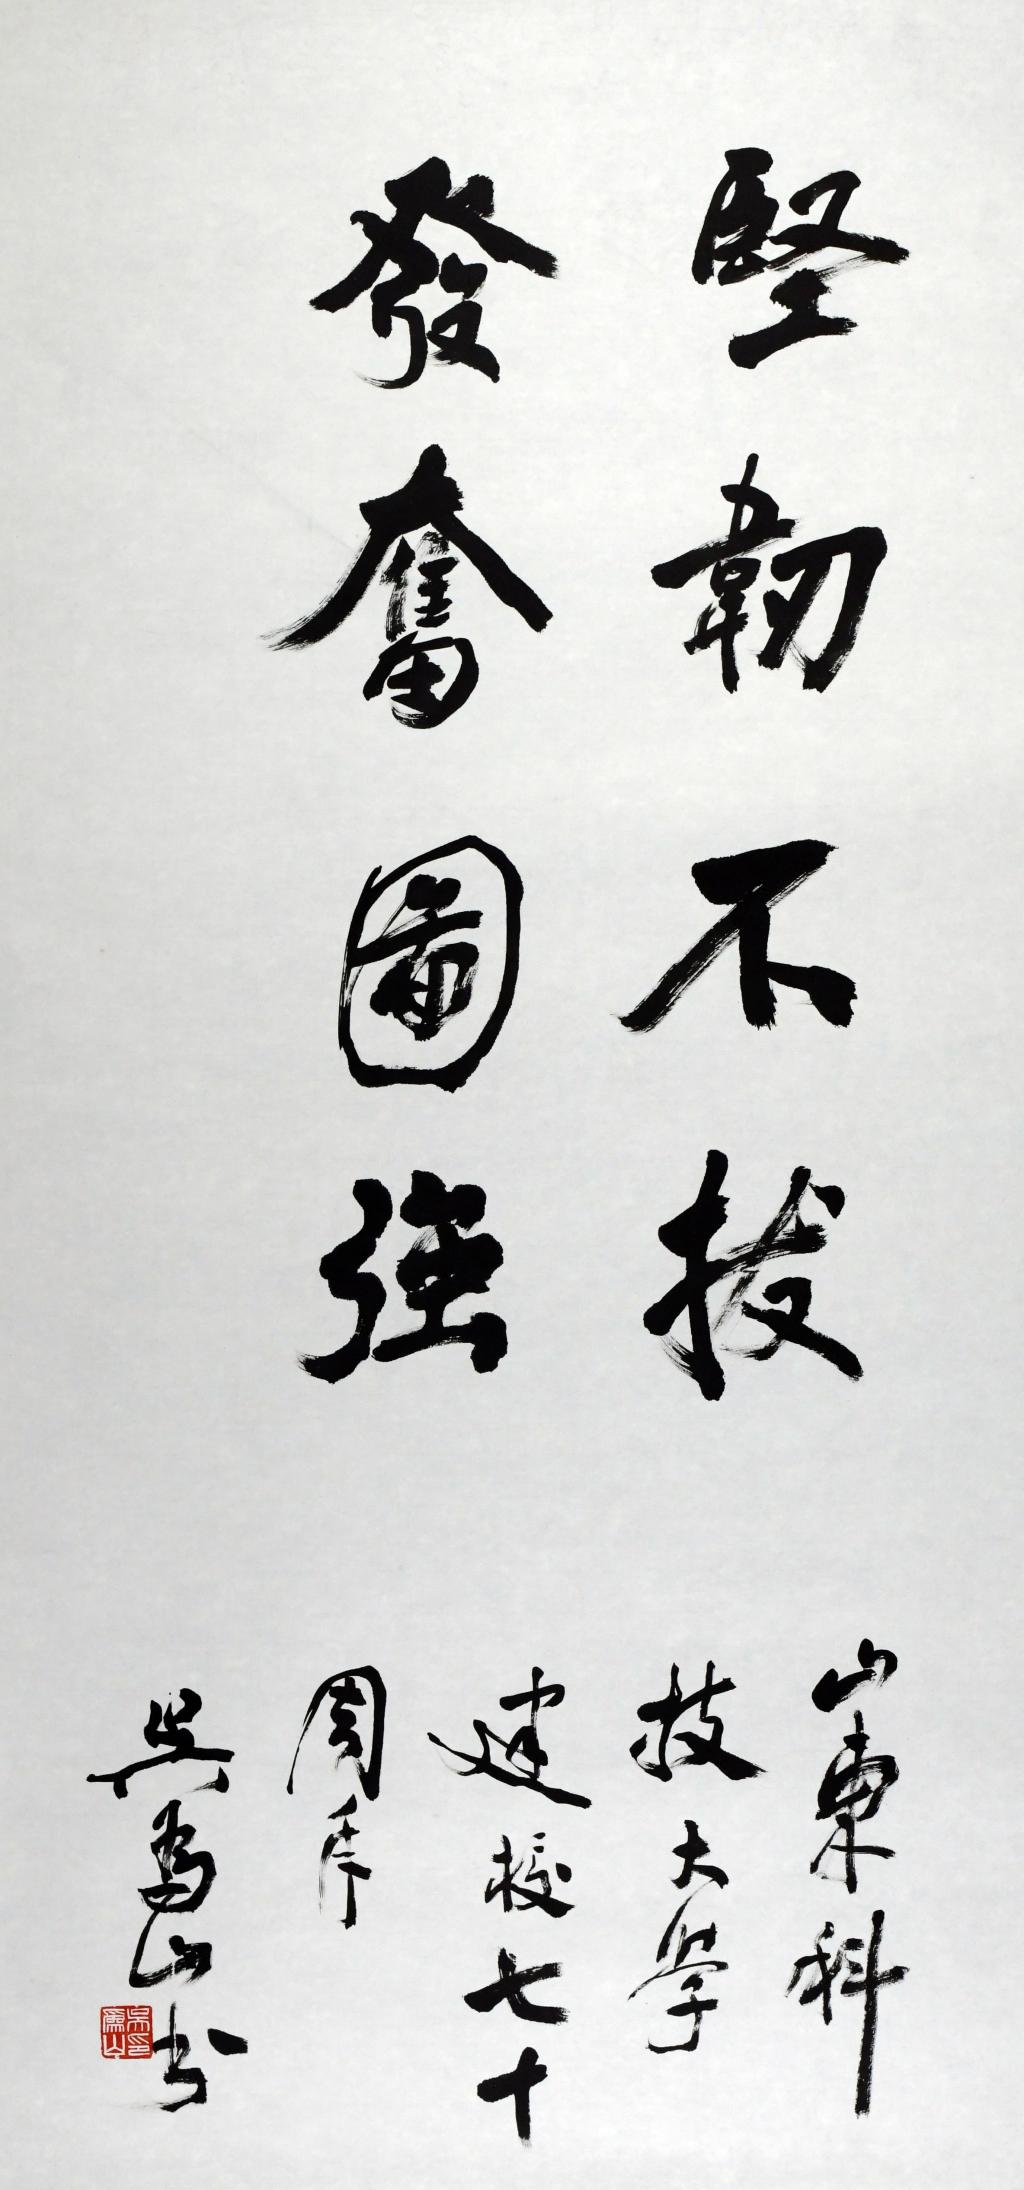 堅韌不拔
發奮圖強
山東科
技大學
建校七十
周年
吳為山书
吳為山印